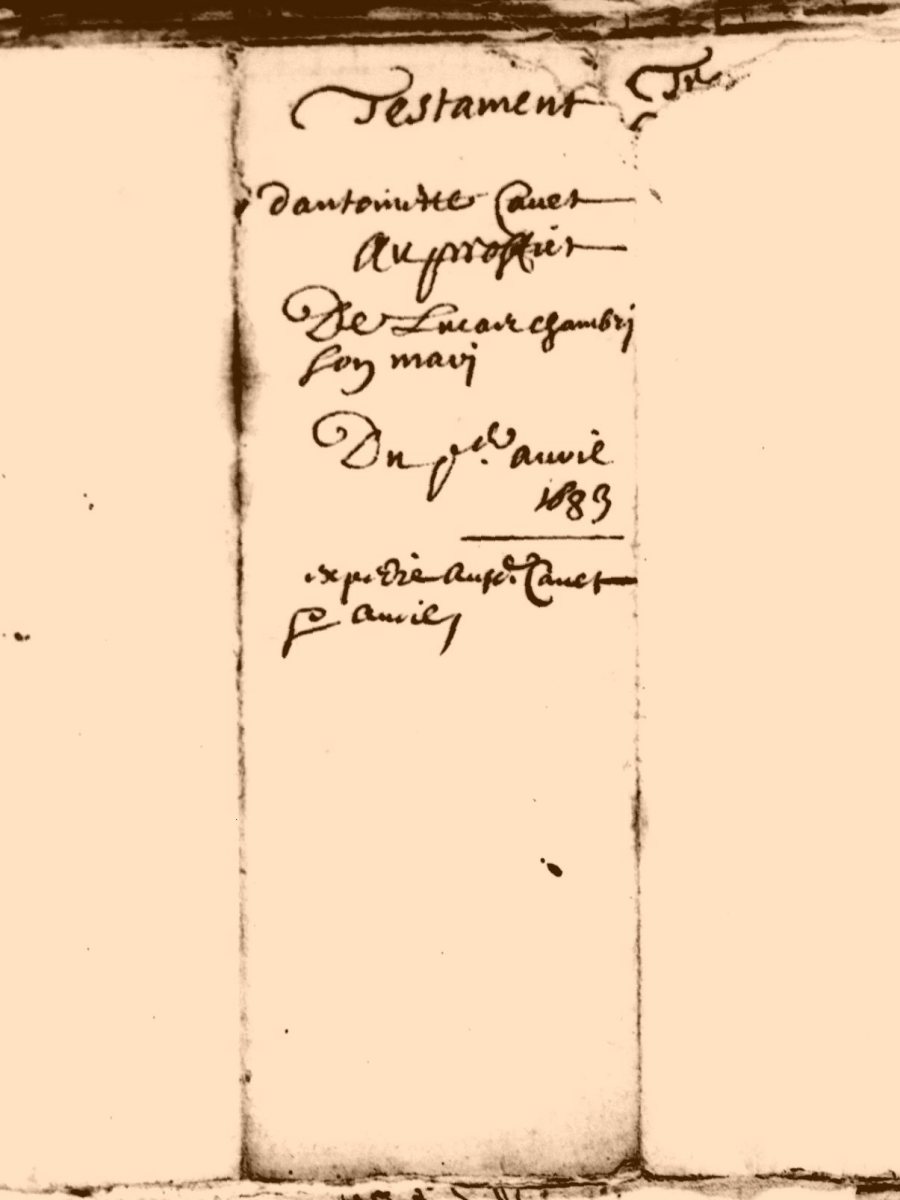 Testament
dantoinette Cauet
Au proffict
De Lucas chambrj
son marj
Du p.er auvril
1683
expedié Ausd. Cauet
Auvril